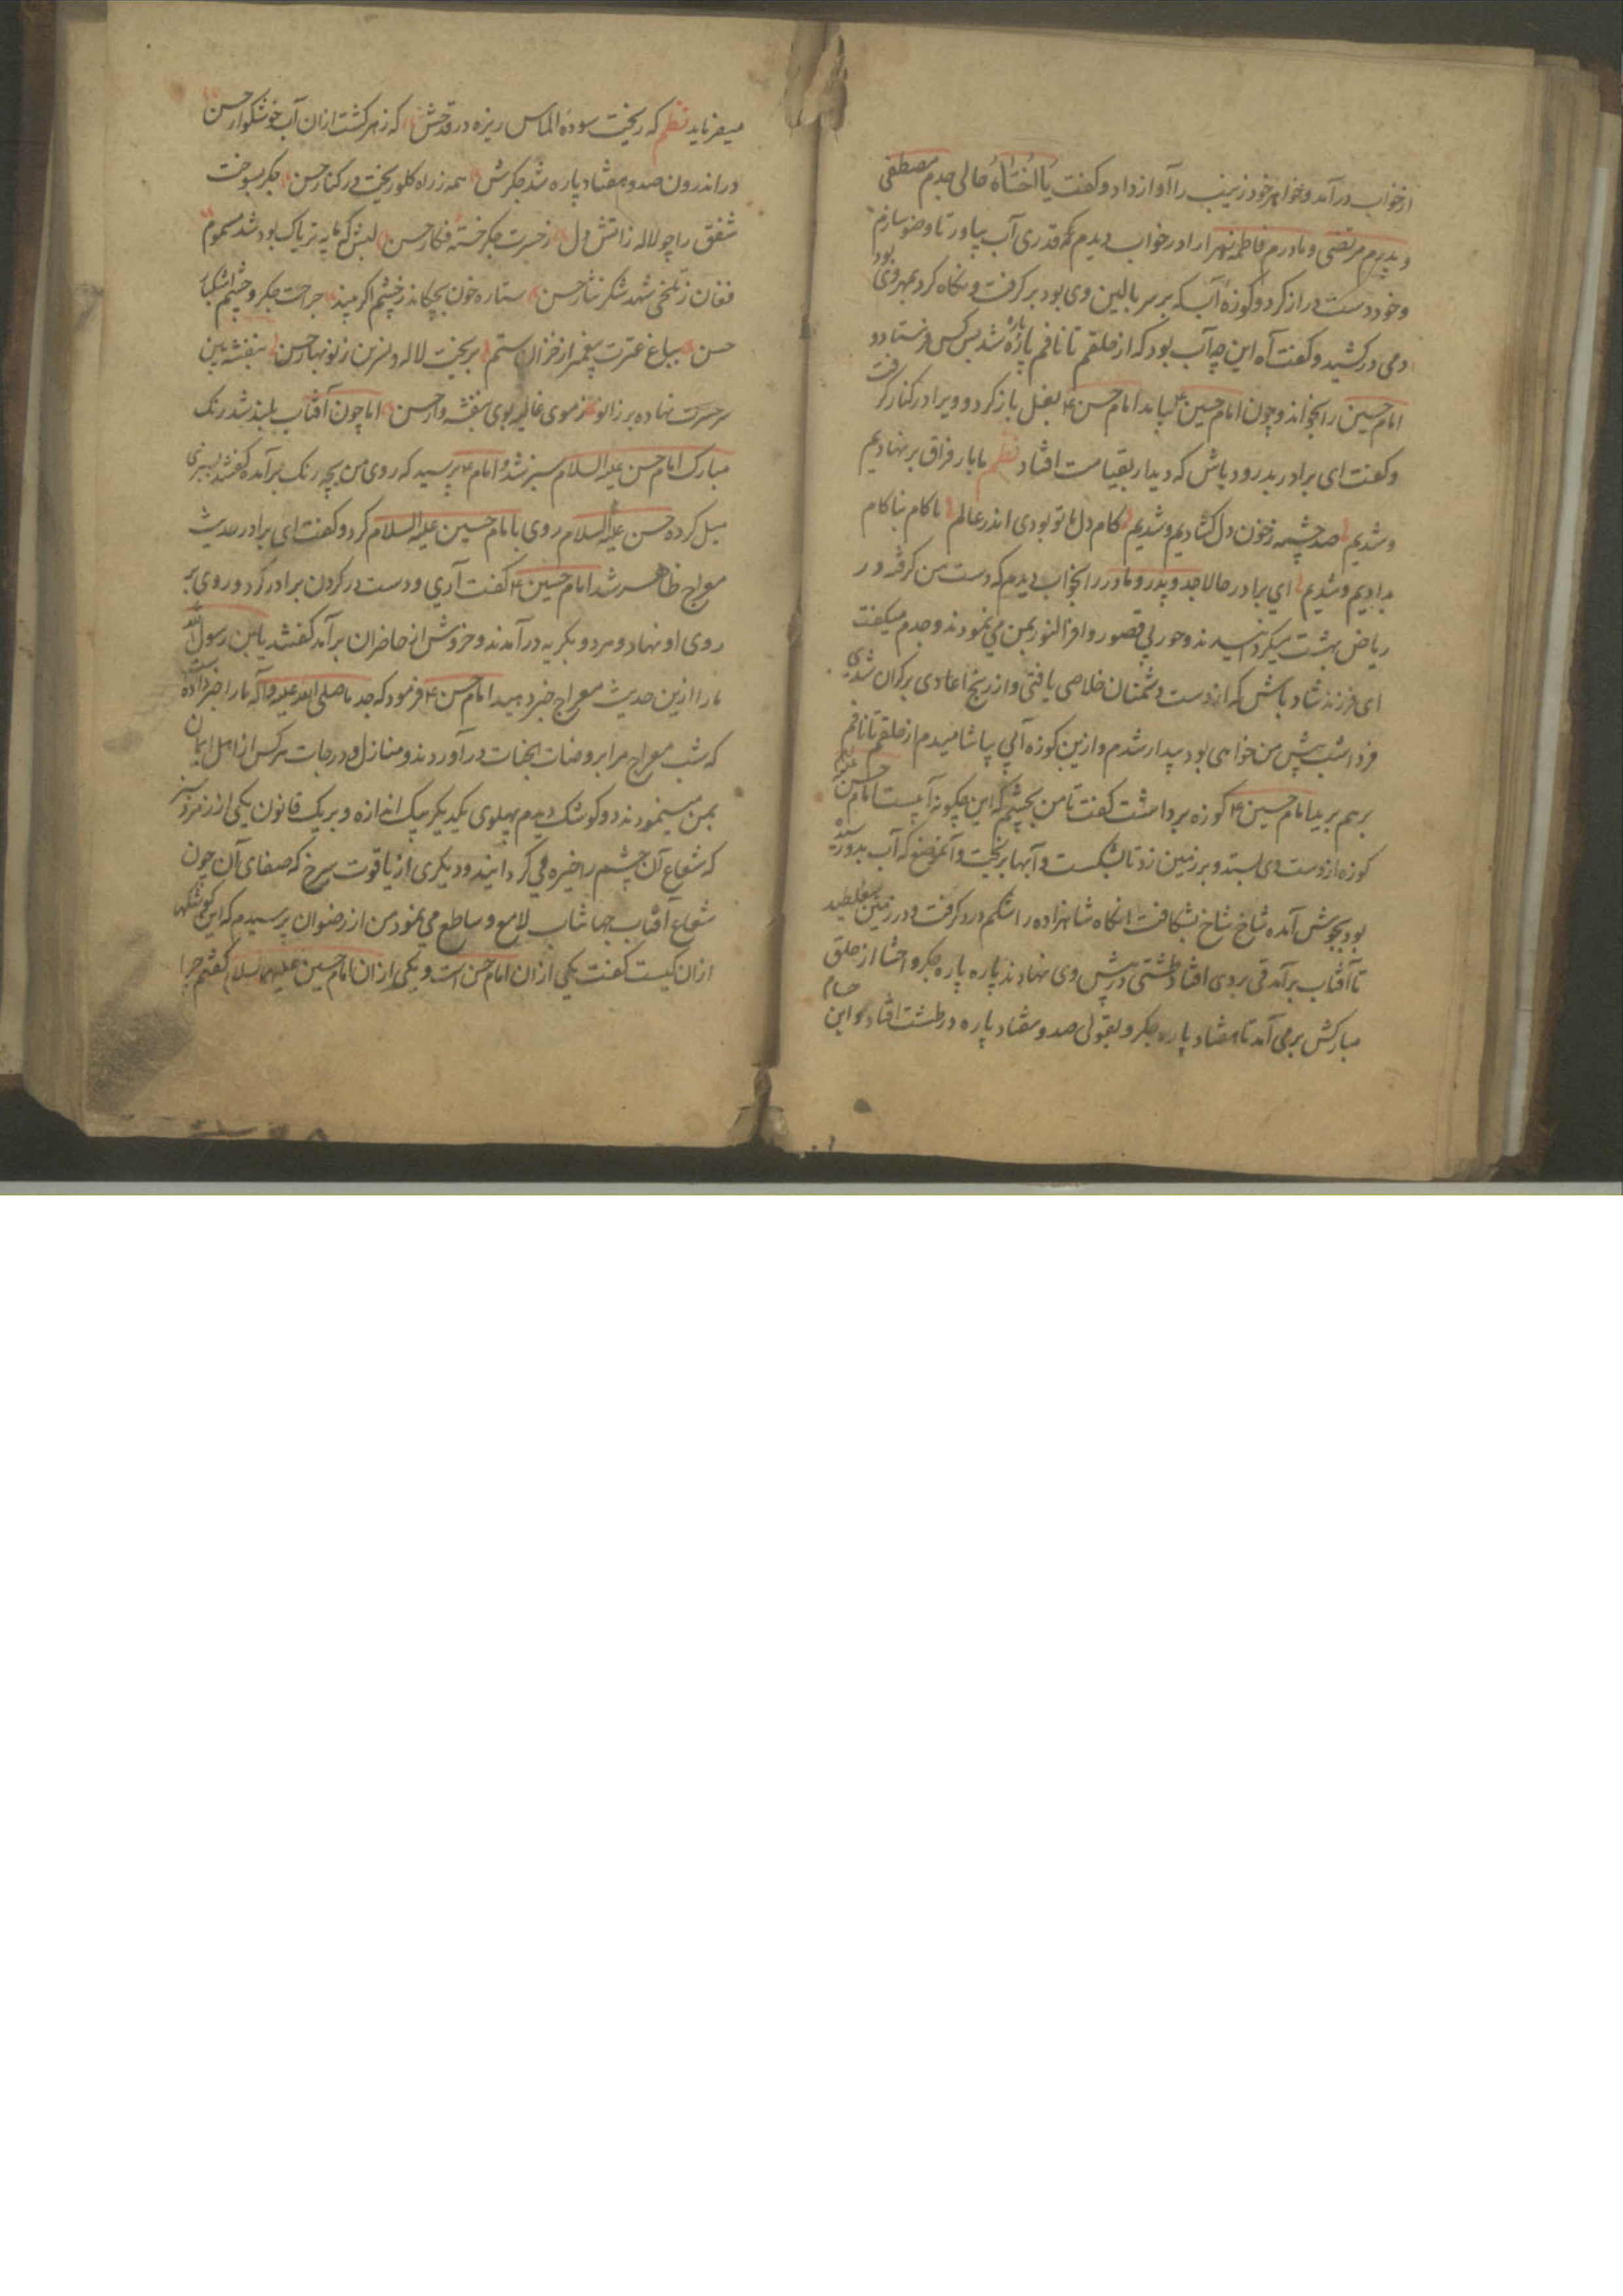 از خواب درآمد و خواهر خود زینب را آواز داد و گفت یا اُختاهُ حالی جدم مصطفی
و پدرم مرتضی و مادرم فاطمه زهرا را در خواب دیدم قدری آب بیاور تا وضو سازم
و خود دست دراز کرد و کوزهٔ آب که بر سر بالین وی بود برگرفت و نگاه کرد بمهر وی بود
دمی درکشید و گفت آه این چه آب بود که از حلقم تا نافم پاره پاره شد پس کس فرستاد و
امام حسین را بخواند و چون امام حسین ع بیامد امام حسن ع بغل باز کرد و ویرا در کنار گرفت
و گفت ای برادر بدرود باش که دیدار بقیامت افتاد نظم ما بار فراق بر نهادیم
و شدیم صد چشمه ز خون دل گشادیم و شدیم کام دل ما تو بودی اندر عالم ناکام بناکام
بدادیم و شدیم ای برادر حالا جد و پدر و مادر را بخواب دیدم که دست من گرفته در
ریاض بهشت میگردانیدند و حور پی قصور وافر النور بمن می نمودند و جدم میگفت
ای فرزند شاد باش که از دست دشمنان خلاصی یافتی و از رنج اعادی بر کران شدی
فردا شب پیش من خواهی بود بیدار شدم و ازین کوزه آبی بیاشامیدم از حلقم تا نافم
برهم برید امام حسین ع کوزه برداشت گفت تا من بچشم که این چگونه آبیست امام حسن علیه السلام
کوزه از دست وی بستد و بر زمین زد تا بشکست و آبها بریخت و آنموضع که آب بدو رسیده
بود بجوش آمده شاخ شاخ بشکافت انگاه شاهزاده را شکم درد گرفت و در زمین میغلطید
تا آفتاب برآمد قی بروی افتاد طشتی در پیش وی نهادند پاره پاره جگر و احشا از حلق
مبارکش برمی آمد تا هفتاد پاره جگر و بقول صد و هفتاد پاره در طشت افتاد و این حسام
میفرماید نظم که ریخت سودهٔ الماس ریزه در قدحش که زهر گشت ازان آب خوشگوار حسن
در اندرون صد و هفتاد پاره شد جگرش همه ز راه گلو ریخت در کنار حسن جگر بسوخت
شفق را چو لاله ز آتش دل ز حسرت جگر خسته فکار حسن لبش که مایه تریاک بود شد مسموم
فغان ز تلخی شهد شکر نثار حسن ستاره خون بچکاند ز چشم اگر بیند جراحت جگر و چشم اشکبار
حسن بباغ عترت پیغمبر از خزان ستم بریخت لاله و نسرین ز نوبهار حسن بنفشه بین
سر حسرت نهاده بر زانو ز موی غالیه بوی بنفشه وار حسن اما چون آفتاب بلند شد رنگ
مبارک امام حسن علیه السلام سبز شد و امام ع پرسید که روی من بچه رنگ برآمده گفتند بسبزی
میل کرده حسن علیه السلام روی بامام حسین علیه السلام کرد و گفت ای برادر حدیث
معراج ظاهر شد امام حسین ع گفت آری و دست در گردن برادر کرد و روی بر
روی او نهاد و هر دو بگریه درآمدند و خروش از حاضران برآمد گفتند یا ابن رسول الله
ما را ازین حدیث معراج خبر دهید امام حسن ع فرمود که جد ما صلی الله علیه و آله ما را خبر داده است
که شب معراج مرا بروضات الجنات درآوردند و منازل و درجات هرکس از اهل ایمان
بمن مینمودند دو کوشک دیدم پهلوی یکدیگر بیک اندازه و بر یک قانون یکی از زمرد سبز
که شعاع آن چشم را خیره می گردانید و دیگری از یاقوت سرخ که صفای آن چون
شعاع آفتاب جهانتاب لامع و ساطع می نمود من از رضوان پرسیدم که این کوشکها
ازان کیست گفت یکی ازان امام حسن است و یکی ازان امام حسین علیهما السلام گفتم چرا